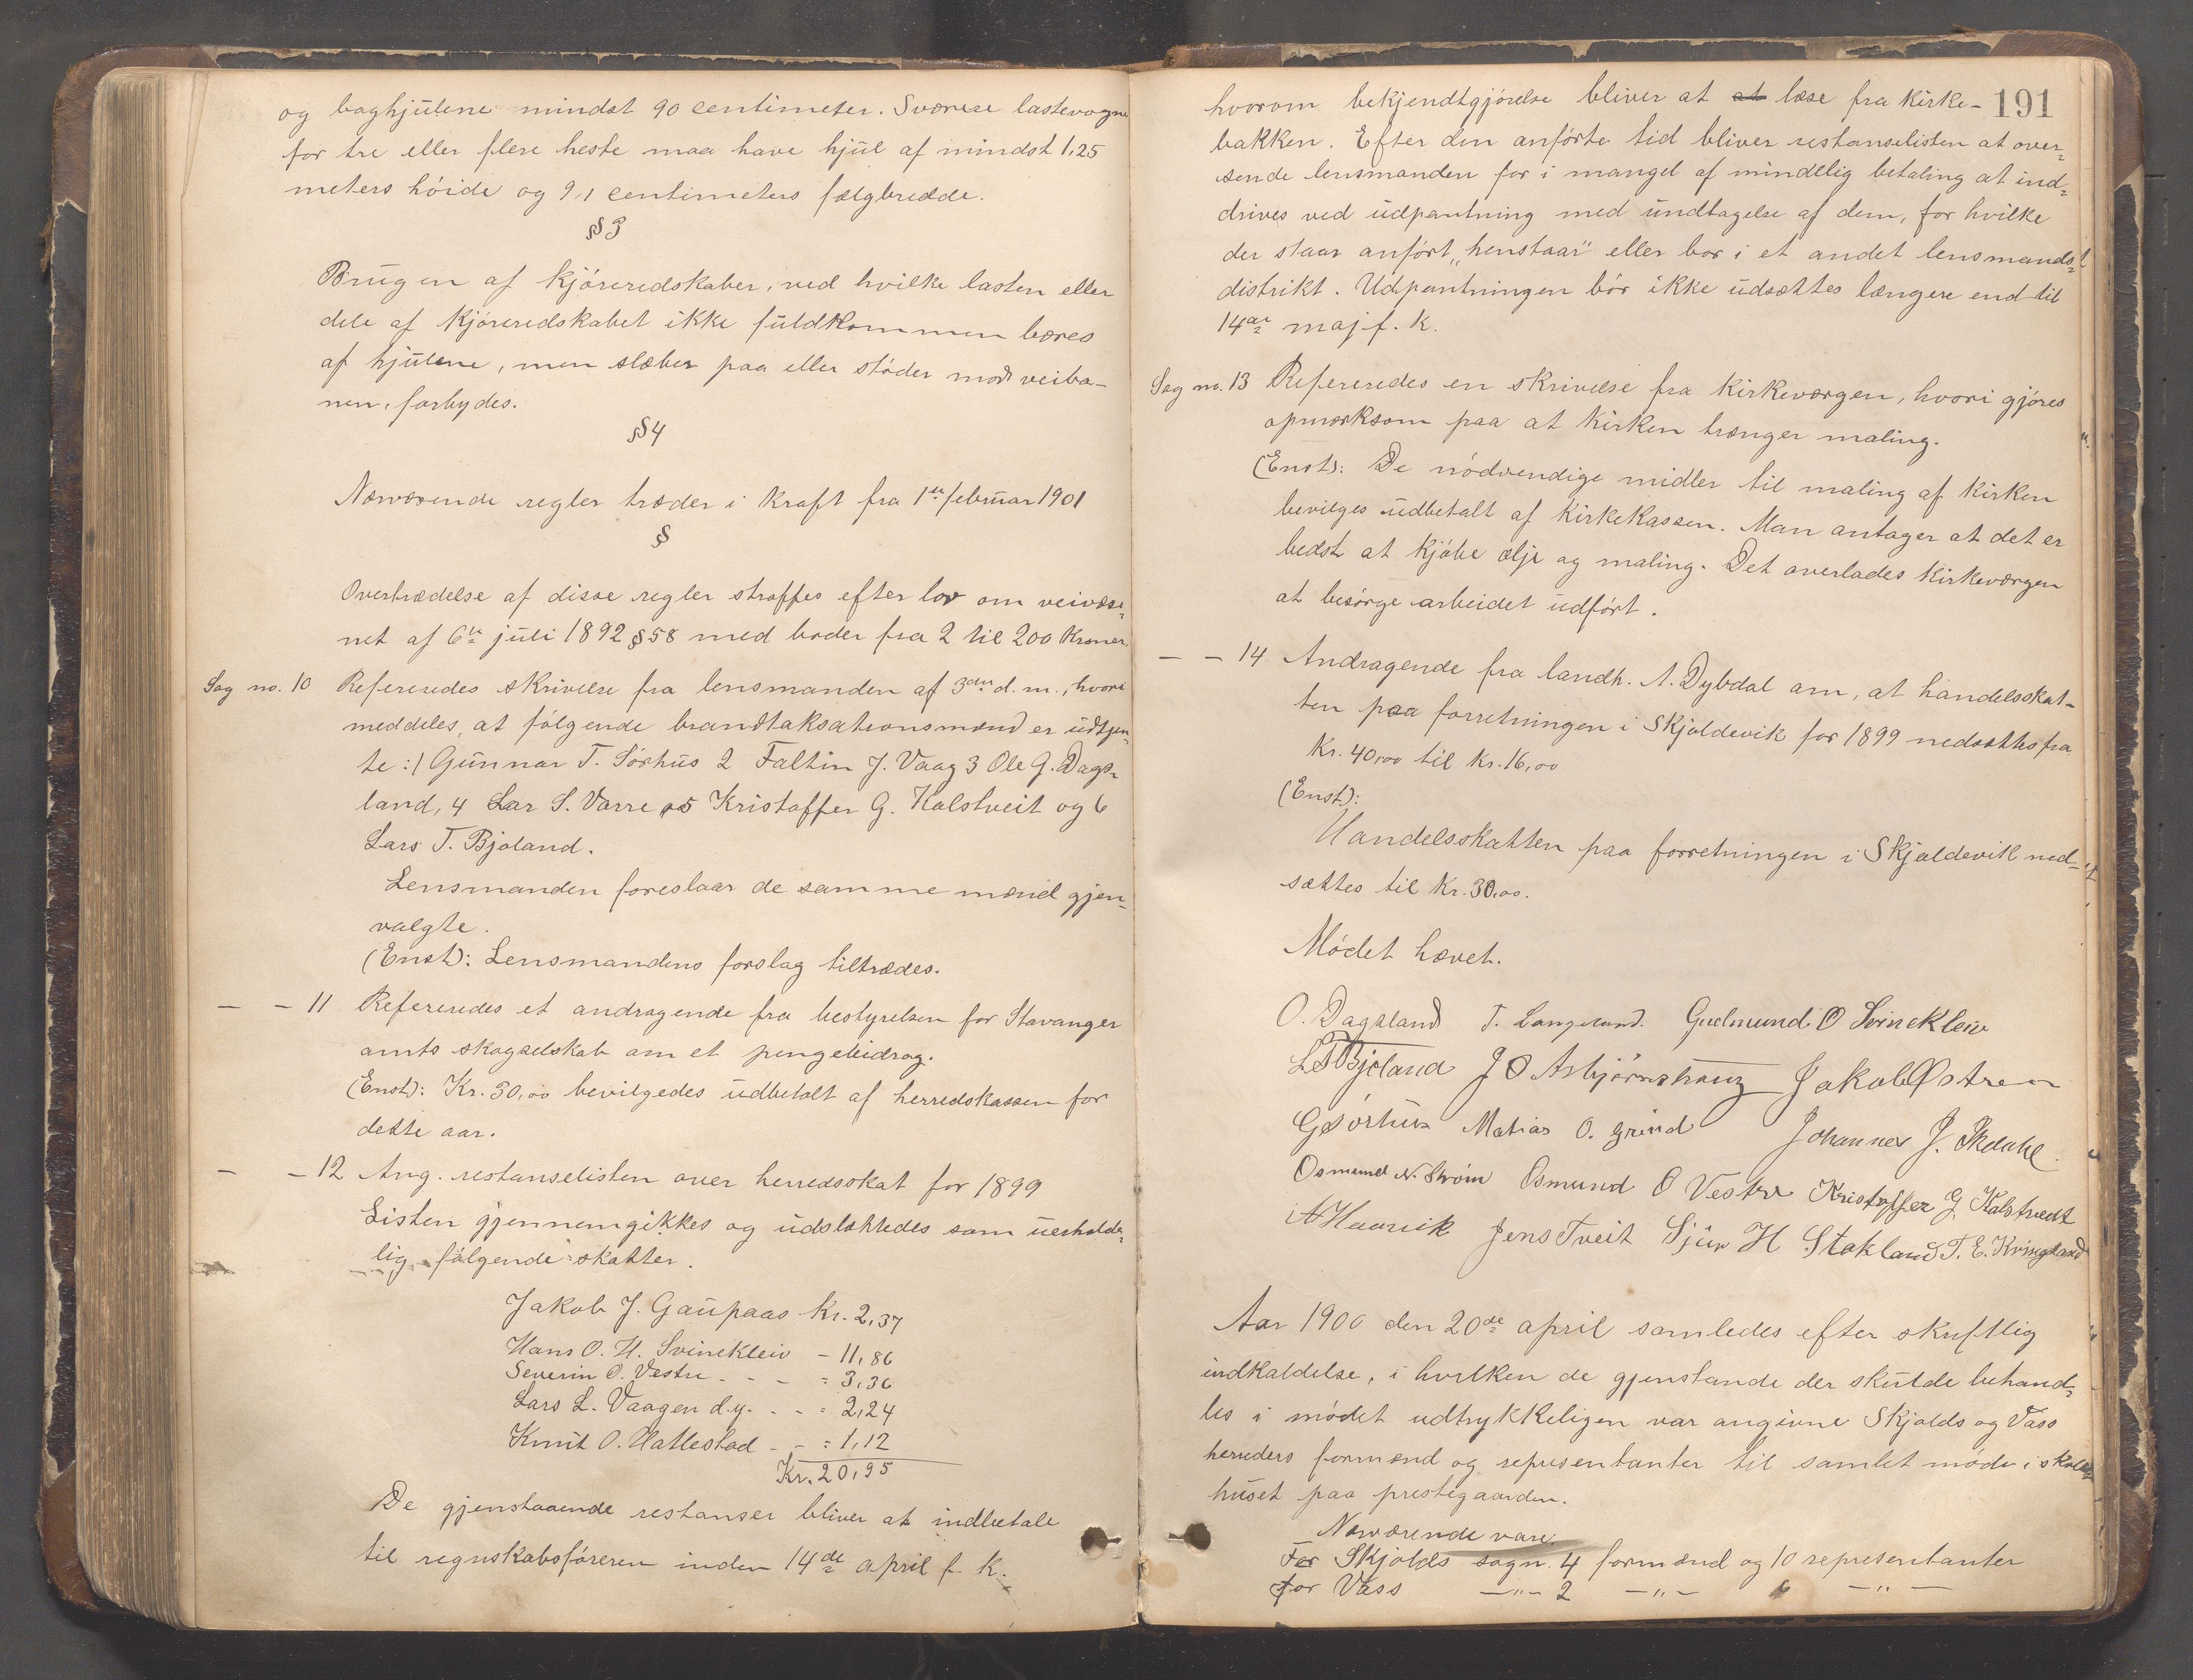 og baghjulene mindst 90 centimeter. Sværere lastevogne
for tre eller flere heste maa have hjul af mindst 1,25
meters höide og 9,1 centimeters fælgbredde.
§3
Brugen af kjöreredskaber, ved hvilke lasten eller
dele af kjöreredskabet ikke fuldkommen bæres
af hjulene, men slæber paa eller stöder mod veiba-
nen, forbydes.
§4
Nærværende regler træder i kraft fra 1ste februar 1901
§
Overtrædelse af disse regler straffes efter lov om veivæse-
net af 6te juli 1892 §58 med bøder fra 2 til 200 kroner.
Sag no. 10 Refereredes skrivelse fra lensmanden af 3die d. m., hvori
meddeles, at fölgende brandtaksationsmænd er udtjen-
te: 1 Gunnar T. Sörhus 2 Faltin J. Vaag 3 Ole G. Dags-
land, 4 Lar S. Varre 5 Kristoffer G. Kalstveit og 6
Lars T. Bjoland.
Lensmanden foreslaar de samme mænd gjen-
valgte.
(Enst): Lensmandens forslag tiltrædes.
— — 11 Refereredes et andragende fra bestyrelsen for Stavanger
amts skogselskab om et pengebidrag.
(Enst): Kr. 30,00 bevilgedes udbetalt af herredskassen for
dette aar.
— — 12 Ang. restanselisten over herredsskat for 1899
Listen gjennemgikkes og udslættedes som uerholde-
lig fölgende skatter.
Jakob J. Gaupaas Kr. 2,37
Hans O. H. Svinekleiv - 11,86
Severin O. Vestre - - - = 3,36
Lars L. Vaagen d.y. - - = 2,24
Knut O. Hattestad - - = 1,12
Kr. 20,95
De gjenstaaende restanser bliver at indbetale
til regnskabsföreren inden 14de april f. k.
191
hvorom bekjendtgjörelse bliver at at læse fra kirke-
bakken. Efter den anförte tid bliver restanselisten at over-
sende lensmanden for i mangel af mindelig betaling at ind-
drives ved udpantning med undtagelse af dem, for hvilke
der staar anfört "henstaar" eller bor i et andet lensmands-
distrikt. Udpantningen bör ikke udsættes længere end til
14de maj f. k.
Sag no. 13 Refereredes en skrivelse fra kirkeværgen, hvori gjöres
opmærksom paa at kirken trænger maling.
(Enst): De nödvendige midler til maling af kirken
bevilges udbetalt af kirkekassen. Man antager at det er
bedst at kjöbe olje og maling. Det overlades kirkeværgen
at besörge arbeidet udfört.
— — 14 Andragende fra landh. A. Dybdal om, at handelsskat-
ten paa forretningen i Skjoldevik for 1899 nedsættes fra
Kr. 40,00 til Kr. 16,00
(Enst):
Handelsskatten paa forretningen i Skjoldevik ned-
sættes til Kr. 30,00.
Mödet hævet.
O. Dagsland T. Langeland. Gudmund O Svinekleiv
L T Bjoland J O Asbjörn Jakob Østren
G Sörhus Matias O. Grind Johannes J.
Osmund N. Ström Osmund O Vestre Kristoffer G Kalstvedt
A Haavik Jens Tveit Sjur H Stakland T. E. Kringeland
Aar 1900 den 20de april samledes efter skriftlig
indkaldelse, i hvilken de gjenstande der skulde behand-
les i mödet udtrykkeligen var angivne Skjolds og Vass
herreders formænd og representanter til samlet möde i skole-
huset paa prestegaarden.
Nærværende vare:
For Skjolds sogn. 4 formænd og 10 representanter
for Vass —"— 2 —"— 6 —"—